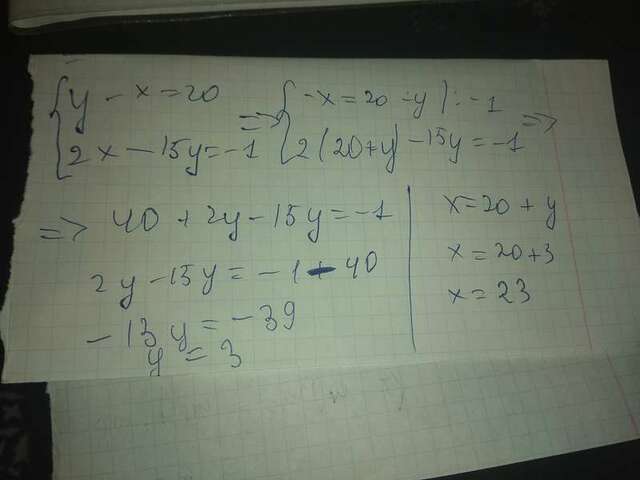 { y - x = 20 => { -x = 20 - y | : -1 =>
{ 2x - 15y = -1 { 2(20+y) - 15y = -1
=> 40 + 2y - 15y = -1
2y - 15y = -1 - 40
-13y = -39
y = 3
x = 20 + y
x = 20 + 3
x = 23